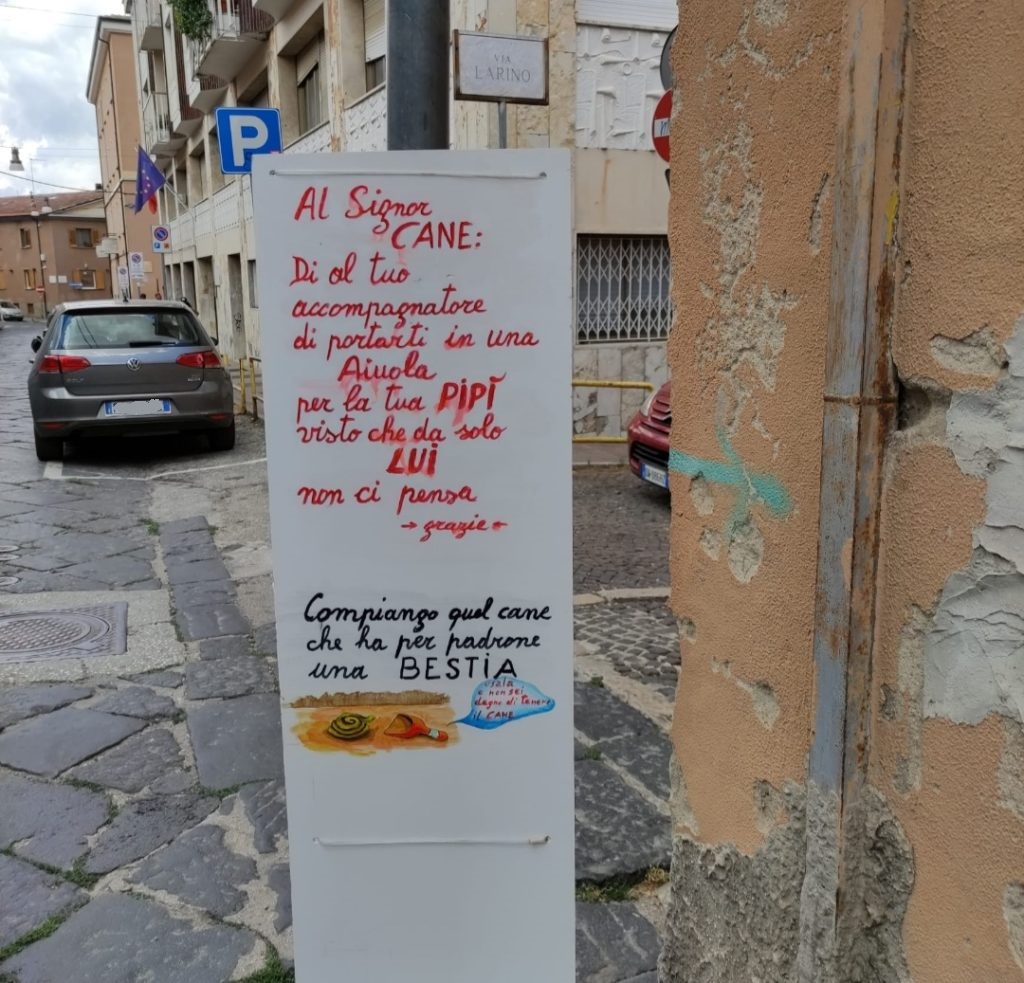 VIA
LARINO
P
Al Signor
CANE:
Di al tuo
accompagnatore
di portarti in una
Aiuola
per la tua PIPÌ
visto che da solo
LUi
non ci pensa
→ grazie ←
Compiango quel cane
che ha per padrone
una BESTiA
usala
o non sei
degno di tenere
il CANE